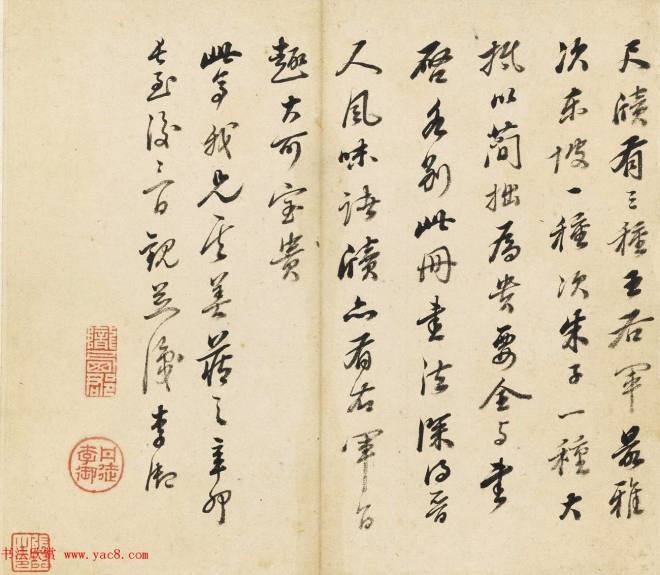 尺牘有三種王右軍最雅
次東坡一種次朱子一種大
抵以簡拙為貴要全与書
啓各別此冊書法深得晉
人風味語牘亦有右軍旨
趣大可寶貴
此我兄其善藏之辛卯
長至後三日觀並識李御
丹徒李御
书法欣赏 www.yac8.com